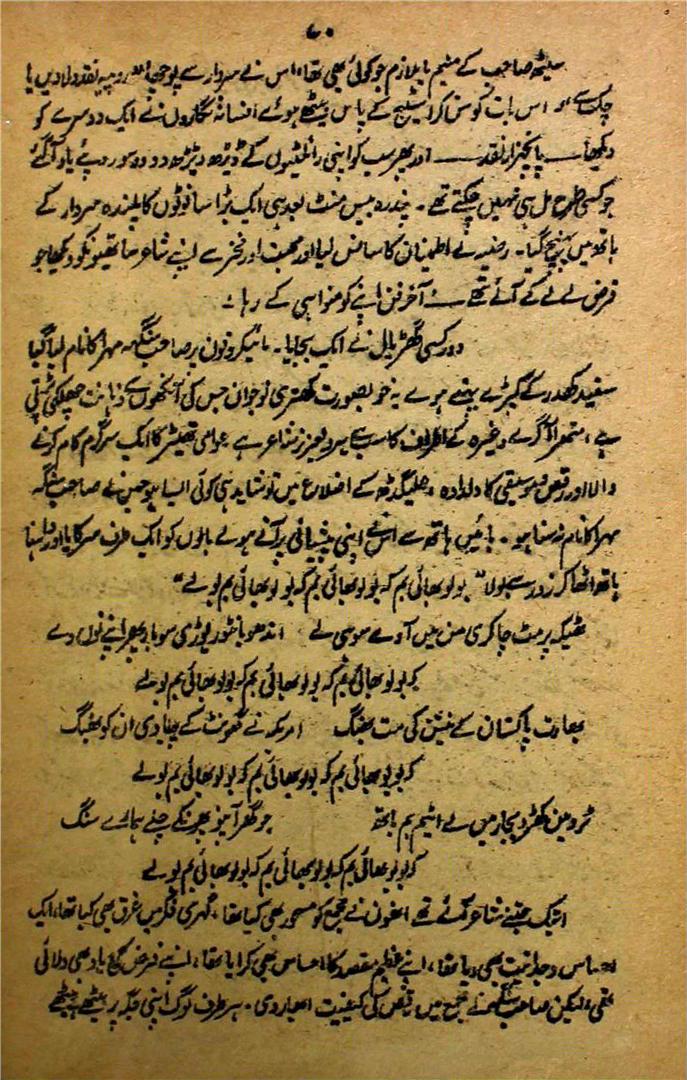 ۷۰
سیٹھ صاحب کے منیم یا ملازم جو کوئی بھی تھا، اس نے سردار سے پوچھا روپیہ نقد دلا دیں یا
چک سے اور اس بات کو سن کر اسٹیج کے پاس بیٹھے ہوئے افسانہ نگاروں نے ایک دوسرے کو
دیکھا — پانچہزار نقد — اور پھر سب کو اپنی رائلٹیوں کے ڈیڑھ ڈیڑھ دو دو سو روپے یاد آ گئے
جو کسی طرح مل ہی نہیں چکتے تھے۔ پندرہ بیس منٹ بعد ہی ایک بڑا سا نوٹوں کا پلندہ سردار کے
ہاتھ میں پہنچ گیا۔ رضیہ نے اطمینان کا سانس لیا اور محبت اور فخر سے اپنے شاعر ساتھیوں کو دیکھا جو
قرض لے لے کے آئے تھے — آخر فن اپنے کو منوا ہی کے رہا۔
دور کسی گھڑیال نے ایک بجایا۔ مائیکروفون پر صاحب سنگھ مہرا کا نام لیا گیا
سفید کھدر کے کپڑے پہنے ہوے یہ خوبصورت کھتری نوجوان جس کی آنکھوں سے ذہانت چھلکی پڑتی
ہے، متھرا آگرے وغیرہ کے اطراف کا سب سے ہردلعزیز شاعر ہے عوامی تھیٹر کا ایک سرگرم کام کرنے
والا اور رقص و موسیقی کا دلدادہ و علیگڑھ کے اضلاع میں تو شاید ہی کوئی ایسا ہو جس نے صاحب سنگھ
مہرا کا نام نہ سنا ہو۔ بائیں ہاتھ سے اس نے اپنی پیشانی پر آئے ہوئے بالوں کو ایک طرف سرکایا اور داہنا
ہاتھ اٹھا کر زور سے بولا "بولو بھائی بم کہ بولو بھائی بم کہ بولو بھائی بم بولے"
ٹھیکہ پرمٹ چاکری من میں آوے موسی لے اندھو بانٹے ریوڑی سو بار پھر اپنے نوں دے
کہ بولو بھائی بم کہ بولو بھائی بم کہ بولو بھائی بم بولے
بھارت پاکستان کے نیتن کی مت بھنگ امریکہ نے گھونٹ کے پلا دی ان کو بھنگ
کہ بولو بھائی بم کہ بولو بھائی بم کہ بولو بھائی بم بولے
ٹرومین کھڑو بجار میں لے ایٹم بم ہاتھ جو گھر آپنو پھونکے چلے ہمارے سنگ
کہ بولو بھائی بم کہ بولو بھائی بم کہ بولو بھائی بم بولے
ابتک جتنے شاعر آئے تھے انھوں نے مجمع کو مسحور بھی کیا تھا، گہری فکر میں غرق بھی کیا تھا، ایک
احساس وجدانیت بھی دیا تھا، اپنے عظیم مقصد کا احساس بھی کرایا تھا، اپنے فرض کی یاد بھی دلائی
تھی، لیکن صاحب سنگھ نے مجمع میں رقص کی کیفیت ابھار دی۔ ہر طرف لوگ اپنی جگہ پر بیٹھے بیٹھے